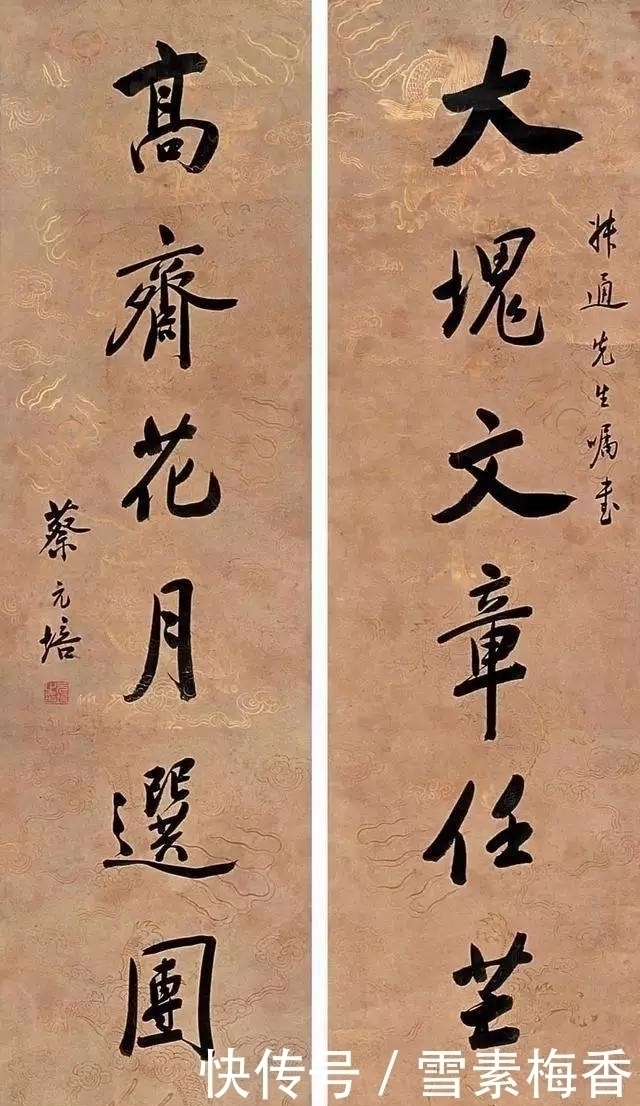 叔通先生嘱書
大塊文章任芒
高齋花月選團
蔡元培
快传号 / 雪素梅香